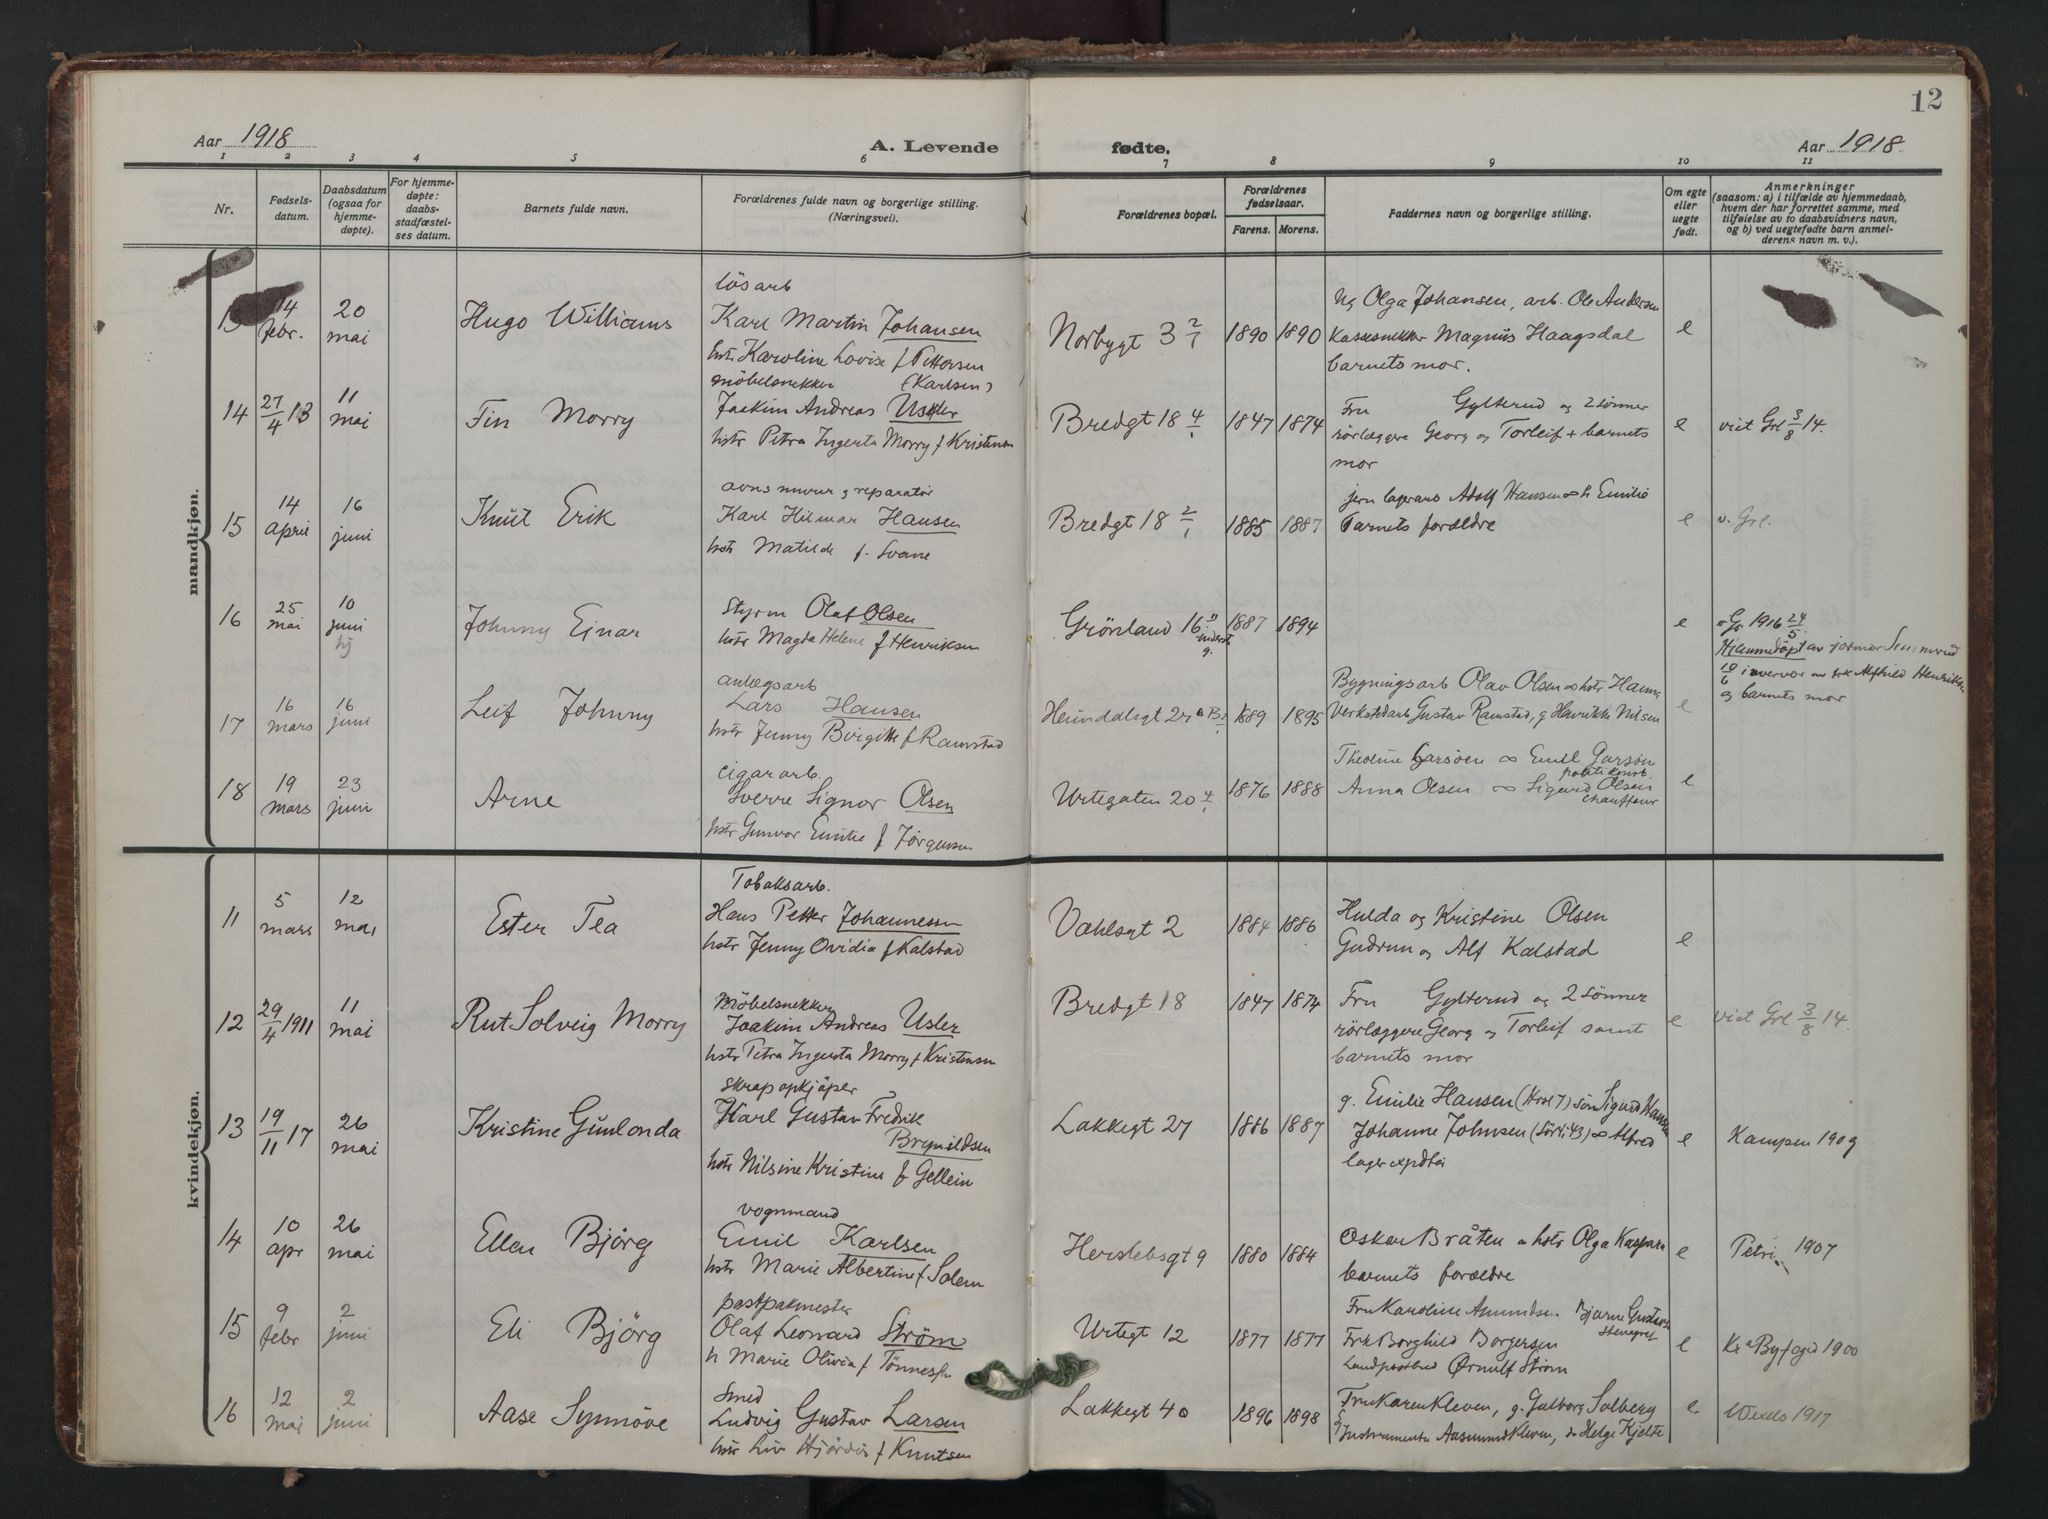 12
Aar 1918
A. Levende
fødte.
Aar 1918
1 2 3 4 5 6 7 8 9 10 11
Nr.
Fødsels-
datum.
Daabsdatum
(ogsaa for
hjemme-
døpte).
For hjemme-
døpte:
daabs-
stadfæstel-
ses datum.
Barnets fulde navn.
Forældrenes fulde navn og borgerlige stilling.
(Næringsvei).
Forældrenes bopæl.
Forældrenes
fødselsaar.
Farens. Morens.
Faddernes navn og borgerlige stilling.
Om egte
eller
uegte
født.
Anmerkninger
(saasom: a) i tilfælde av hjemmedaab,
hvem der har forrettet samme, med
tilføielse av to daabsvidners navn,
og b) ved uegtefødte barn anmel-
derens navn m. v.).
mandkjøn.
14 febr. 20 mai
Hugo Williams
løsarb
Karl Martin Johansen
hstr Karoline Lovise f Pettersen
(Karlsen)
Norbygt 3 2/1
1890 1890
Olga Johansen, arb. Ole Andersen
kassesnekker Magnus Haagsdal
barnets mor.
e
14 27/4 13 11 mai
Fin Morry
møbelsnekker
Joakim Andreas Usler
hstr Petra Ingerta Morry f Kristensen
Bredgt 18 4/1
1847 1874
Fru Gylterud og 2 sønner
rørlæggere Georg og Torleif + barnets
mor
e
viet Grl 3/8 14.
15 14 april 16 juni
Knut Erik
ovnsmurer g reparatør
Karl Hilmar Hansen
hstr Matilde f. Svane
Bredgt 18 2/1
1885 1887
jern lagerarb Adolf Hansen og h Emilie
Barnets forældre
e
v. Grl.
16 25 mai 10 juni hj
Johnny Ejnar
Styrm Olaf Olsen
hstr Magda Helene f Henriksen
Grønland 16
1887 1894
e
Gr. 1916 24/5
Hjemmedøpt av jormor
10/6 i nærvær av frk Alfhild Henriksen
og barnets mor
17 16 mars 16 juni
Leif Johnny
anlægsarb
Lars Hansen
hstr Jenny Birgitte f Ramstad
Heimdalsgt 27
1889 1895
Bygningsarb Olav Olsen og hstr Hanna
Verkstedarb Gustav Ramstad, g Henrikke Nilsen
e
18 19 mars 23 juni
Arne
cigararb.
Sverre Signor Olsen
hstr Gunvor Emilie f Jørgensen
Urtegaten 20 4/1
1876 1888
Theoline Garsøen ∞ Emil Garsøn
politikonst.
Anna Olsen ∞ Sigurd Olsen
chauffeur
e
kvindekjøn.
11 5 mars 12 mai
Ester Tea
Tobaksarb.
Hans Petter Johannessen
hstr Jenny Ovidia f Kalstad
Vahlsgt 2
1884 1886
Hulda og Kristine Olsen
Gudrun og Alf Kalstad
e
12 29/4 1911 11 mai
Rut Solveig Morry
Møbelsnekker
Joakim Andreas Usler
hstr Petra Ingerta Morry f Kristensen
Bredgt 18
1847 1874
Fru Gylterud og 2 sønner
rørlæggere Georg og Torleif samt
barnets mor
e
viet Grl 3/8 14.
13 19/11 17 26 mai
Kristine Gunlonda
skrapopkjøper
Karl Gustav Fredrik
Brynildsen
hstr Nilsine Kristine f Gellein
Lakkegt 27
1886 1887
g. Emilie Hansen søn Sigurd Hansen
Johanne Johnsen (Sørli 43) ∞ Alfred
lagerexpdtør
e
Kampen 1909
14 10 apr 26 mai
Ellen Bjørg
vognmand
Emil Karlsen
hstr Marie Albertine f Solem
Herslebsgt 9
1880 1884
Oskar Bråten hstr Olga Kaspara
barnets forældre
e
Petri 1907
15 9 febr 2 juni
Eli Bjørg
postpakmester
Olaf Leonard Strøm
h Marie Olivia f Tønnesen
Urtegt 12
1877 1877
Fru Karoline Amundsen Bjarne Gustavsen
Frk Borghild Borgersen
Landpostbud Ørnulf Strøm
e
Kr a Byfogd 1900
16 12 mai 2 juni
Aase Synnøve
Smed
Ludvig Gustav Larsen
hstr Liv Hjørdis f Knutsen
Lakkegt 40
1896 1898
Fru Karen Kleven, g. Gulborg Solberg
Instrumentm Aasmund Kleven, do Helge Kjelte
e
1917